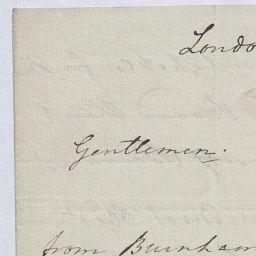 Londo
Gentlemen.
from Burnham